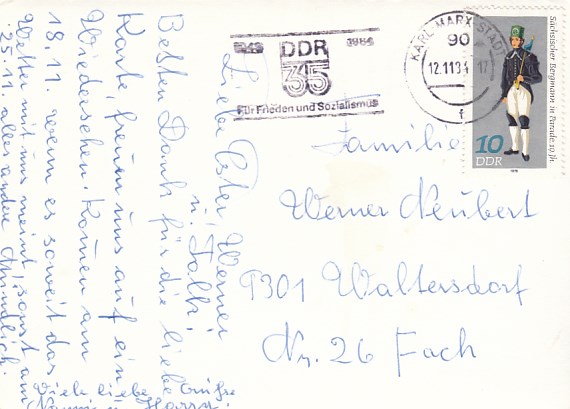 1949 DDR 1984
35
Für Frieden und Sozialismus
KARL-MARX-STADT
90
12.11.84 17
f
Sächsischer Bergmann in Parade 19. Jh.
10
DDR
Familie
Werner Neubert
9301 Waltersdorf
Nr. 26 Fach
Liebe Ester, Werner
u. Falk!
Besten Dank für die liebe
Karte, freuen uns auf ein
Wiedersehen. Komen am
18.11. wenn es soweit das
Wetter mit uns meint, sonst am
25.11. alles andre Mündlich.
Viele liebe Grüße